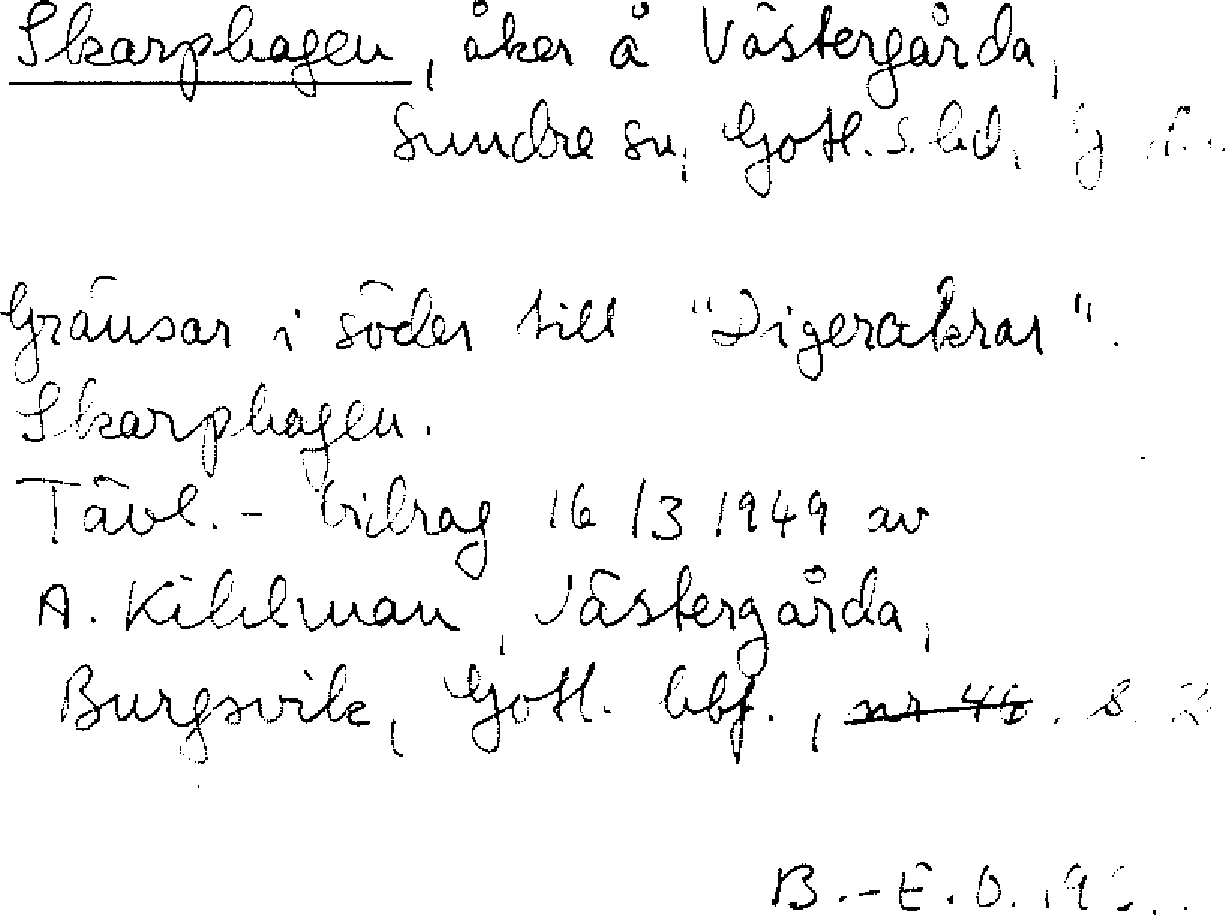 Skarphagen, åker å Västergårda,
Sundre sn, Gotl. s. hd,
Gränsar i söder till "Digerakrar".
Skarphagen.
Tävl.-bidrag 16/3 1949 av
A. Kihlman, Västergårda,
Burgsvik, Gotl. hbf., s.
B.-E.O.